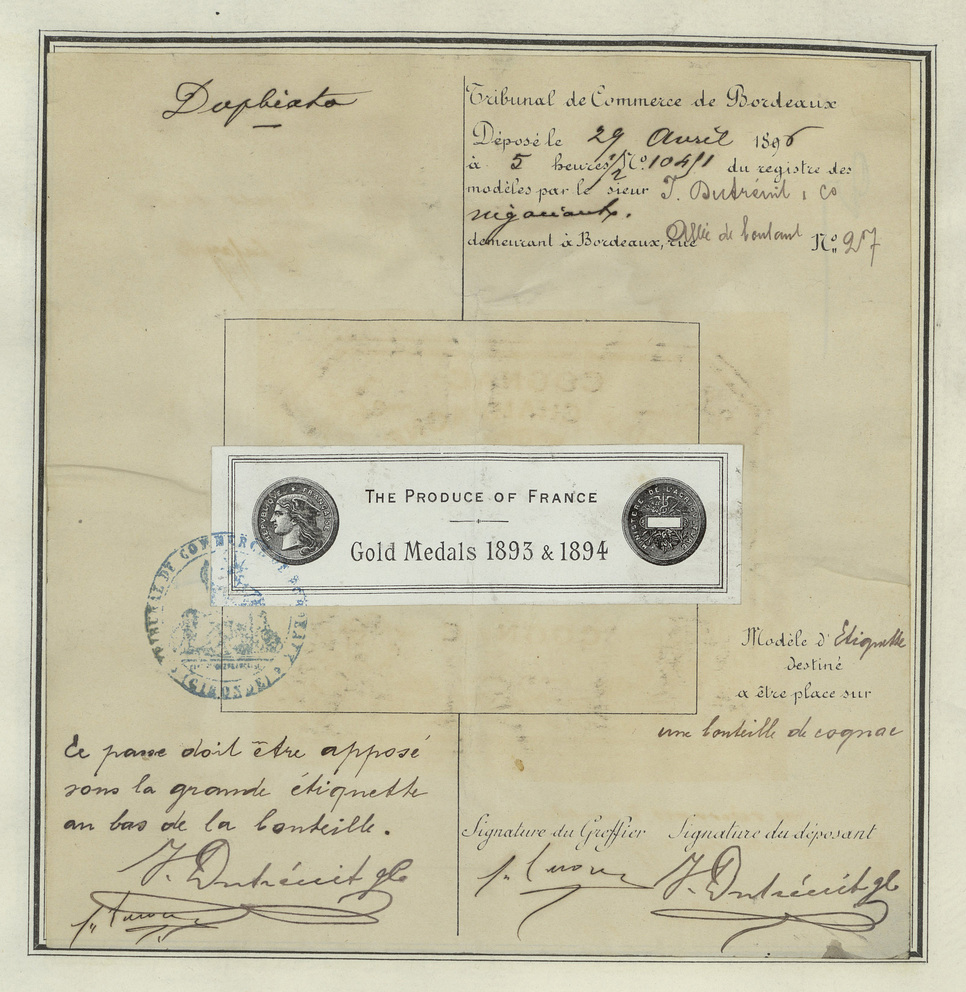 Duplicata
Tribunal de Commerce de Bordeaux
Déposé le 29 Avril 1896
à 5 heures 1/2 N° 10451 du registre des
modèles par le sieur J. Dutrénit & Co
négociants.
demeurant à Bordeaux, rue Allée de Boutaut N° 27
RÉPUBLIQUE FRANÇAISE
THE PRODUCE OF FRANCE
Gold Medals 1893 & 1894
MINISTERE DE L'AGRICULTURE
TRIBUNAL DE COMMERCE DE BORDEAUX
(GIRONDE)
Modèle d'Etiquette
destiné
a être place sur
une bouteille de cognac
Ce passe doit être apposé
sous la grande étiquette
au bas de la bouteille.
J. Dutrénit
Signature du Greffier Signature du déposant
J. Dutrénit